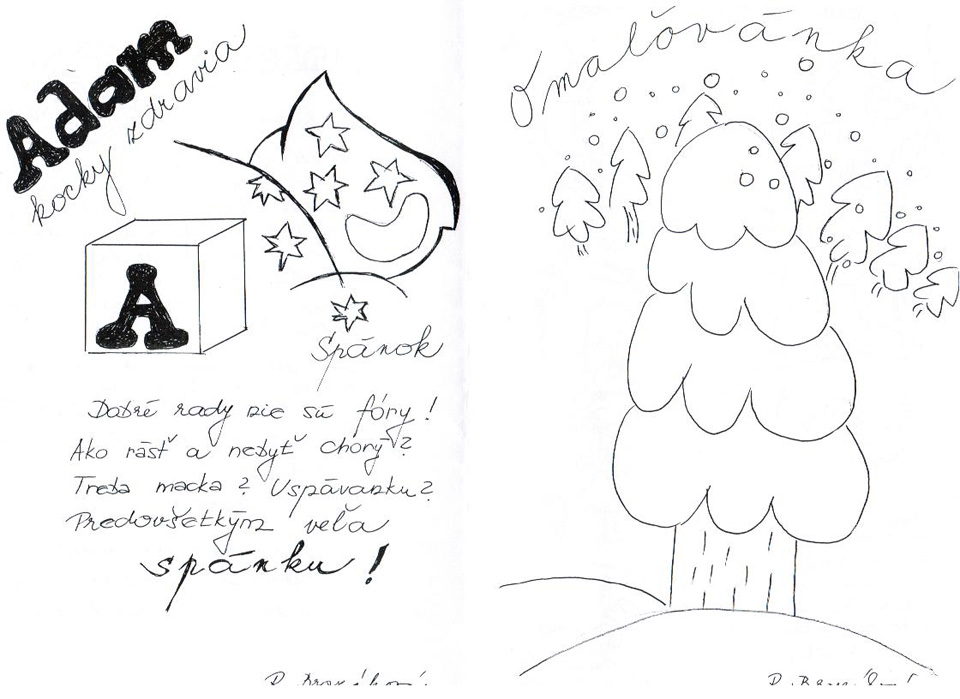 Adam
kocky zdravia
A
Spánok
Dobré rady nie sú fóry!
Ako rásť a nebyť chorý?
Treba macka? Uspávanku?
Predovšetkým veľa
spánku!
Omaľovánka